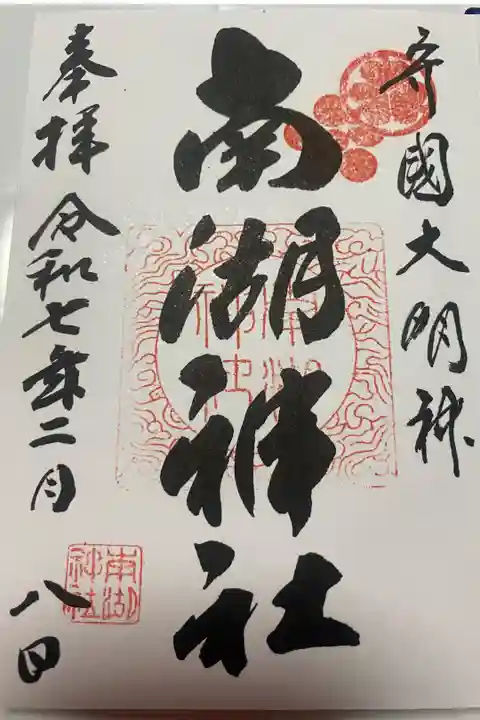 守國大明神
南湖神社
奉拝 令和七年二月
八日
南湖神社
南湖神社